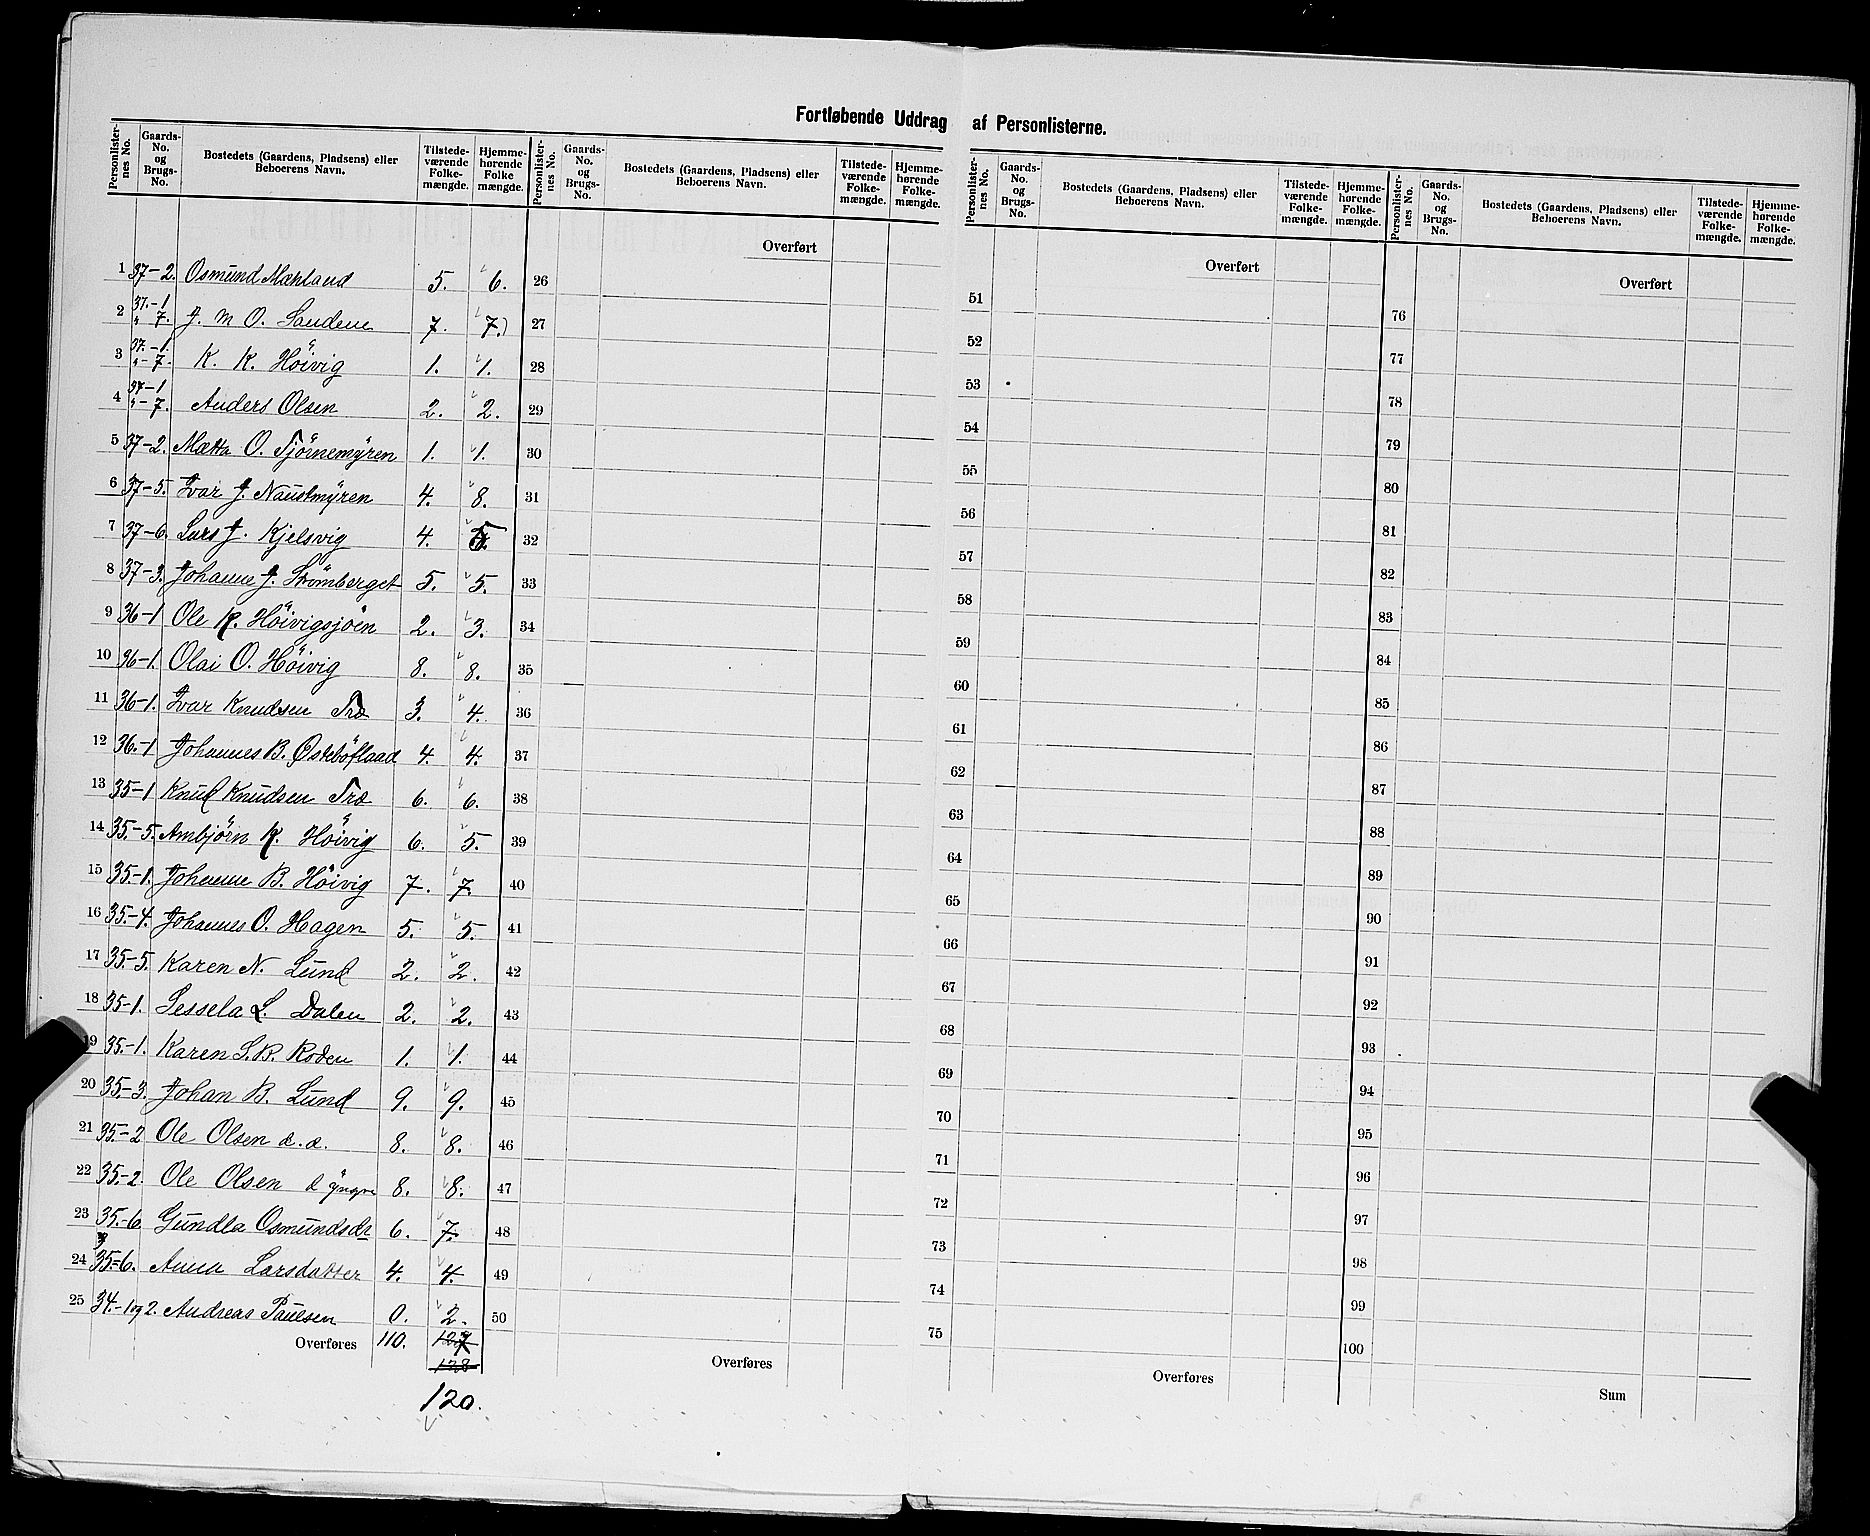 Fortløbende Uddrag af Personlisterne.
Personlister-nes No. Gaards-No. og Brugs-No. Bostedets (Gaardens, Pladsens) eller Beboerens Navn. Tilstede-værende Folke-mængde. Hjemme-hørende Folke mængde.
1 37-2. Osmund Mæhland 5. 6.
2 37.-1 " 7. J. M O. Sandene 7. 7.)
3 37.-1. "-7. K. K. Höivig 1. 1.
4 37-1 "-7. Anders Olsen 2. 2.
5 37-2. Mætta O. Tjörnemÿren 1. 1.
6 37-5. Ivar J. Naustmÿren 4. 8.
7 37-6. Lars J. Kjelsvig 4.
8 37-3. Johanne J. Strömberget 5. 5.
9 36-1 Ole K. Höivigsjöen 2. 3.
10 36-1. Olai O. Höivig 8. 8.
11 36-1. Ivar Knudsen Træ 3. 4.
12 36.-1 Johannes B. Østeböflaad 4. 4.
13 35-1 Knud Knudsen Træ 6. 6.
14 35.-5. Ambjörn K. Höivig 6. 5.
15 35.-1. Johanne B. Höivig 7. 7.
16 35.-4. Johannes O. Hagen 5. 5.
17 35.-5. Karen N. Lund 2. 2.
18 35-1. Sessela L. Dalen 2. 2.
19 35.-1. Karen S. B. Roden 1. 1.
20 35.-3. Johan B. Lund 9. 9.
21 35.-2 Ole Olsen d. æ. 8. 8.
22 35.-2. Ole Olsen d ÿngre 8. 8.
23 35.-6 Gundla Osmundsdr 6. 7.
24 35.-6. Anna Larsdatter 4. 4.
25 34.-1 og 2. Andreas Paulsen 0. 2.
Overføres 110. 127
128
120.
Personlister-nes No. Gaards-No. og Brugs-No. Bostedets (Gaardens, Pladsens) eller Beboerens Navn. Tilstede-værende Folke-mængde. Hjemme-hørende Folke-mængde.
Overført
26
27
28
29
30
31
32
33
34
35
36
37
38
39
40
41
42
43
44
45
46
47
48
49
50
Overføres
Personlister-nes No. Gaards-No. og Brugs-No. Bostedets (Gaardens, Pladsens) eller Beboerens Navn. Tilstede-værende Folke-mængde. Hjemme-hørende Folke-mængde.
Overført
51
52
53
54
55
56
57
58
59
60
61
62
63
64
65
66
67
68
69
70
71
72
73
74
75
Overføres
Personlister-nes No. Gaards-No. og Brugs-No. Bostedets (Gaardens, Pladsens) eller Beboerens Navn. Tilstede-værende Folke-mængde. Hjemme-hørende Folke-mængde.
Overført
76
77
78
79
80
81
82
83
84
85
86
87
88
89
90
91
92
93
94
95
96
97
98
99
100
Sum